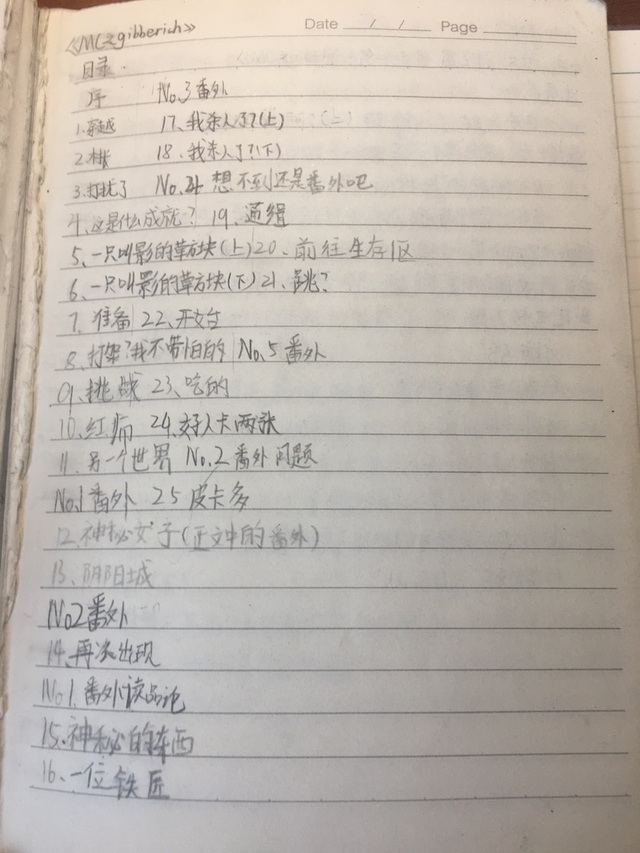 《MC之gibberich》 Date / / Page
目录
序 No.3 番外
1.穿越 17、我杀人了?(上)
2.村 18、我杀人了?(下)
3.打扰了 No.4 想不到还是番外吧
4、这是什么成就? 19、通缉
5、一只叫影的草方块(上) 20、前往生存区
6、一只叫影的草方块(下) 21、跳?
7、准备 22、开文台
8、打架?我不带怕的 No.5 番外
9、挑战 23、吃的
10、红 24、好人卡两张
11、另一个世界 No.2 番外问题
No.1 番外 25 皮卡多
12、神秘女子(正文中的番外)
13、阴阳城
No2 番外
14、再次出现
No1、番外读品论
15、神秘的东西
16、一位铁匠